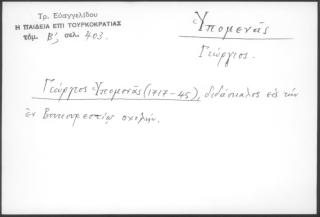 Τρ. Εὐαγγελίδου
Η ΠΑΙΔΕΙΑ ΕΠΙ ΤΟΥΡΚΟΚΡΑΤΙΑΣ
τόμ. Β', σελ. 403.
Ὑπομενᾶς
Γεώργιος.
Γεώργιος Ὑπομενᾶς (1717-45), διδάσκαλος εἰς τὴν
ἐν Βουκουρεστίῳ σχολήν.